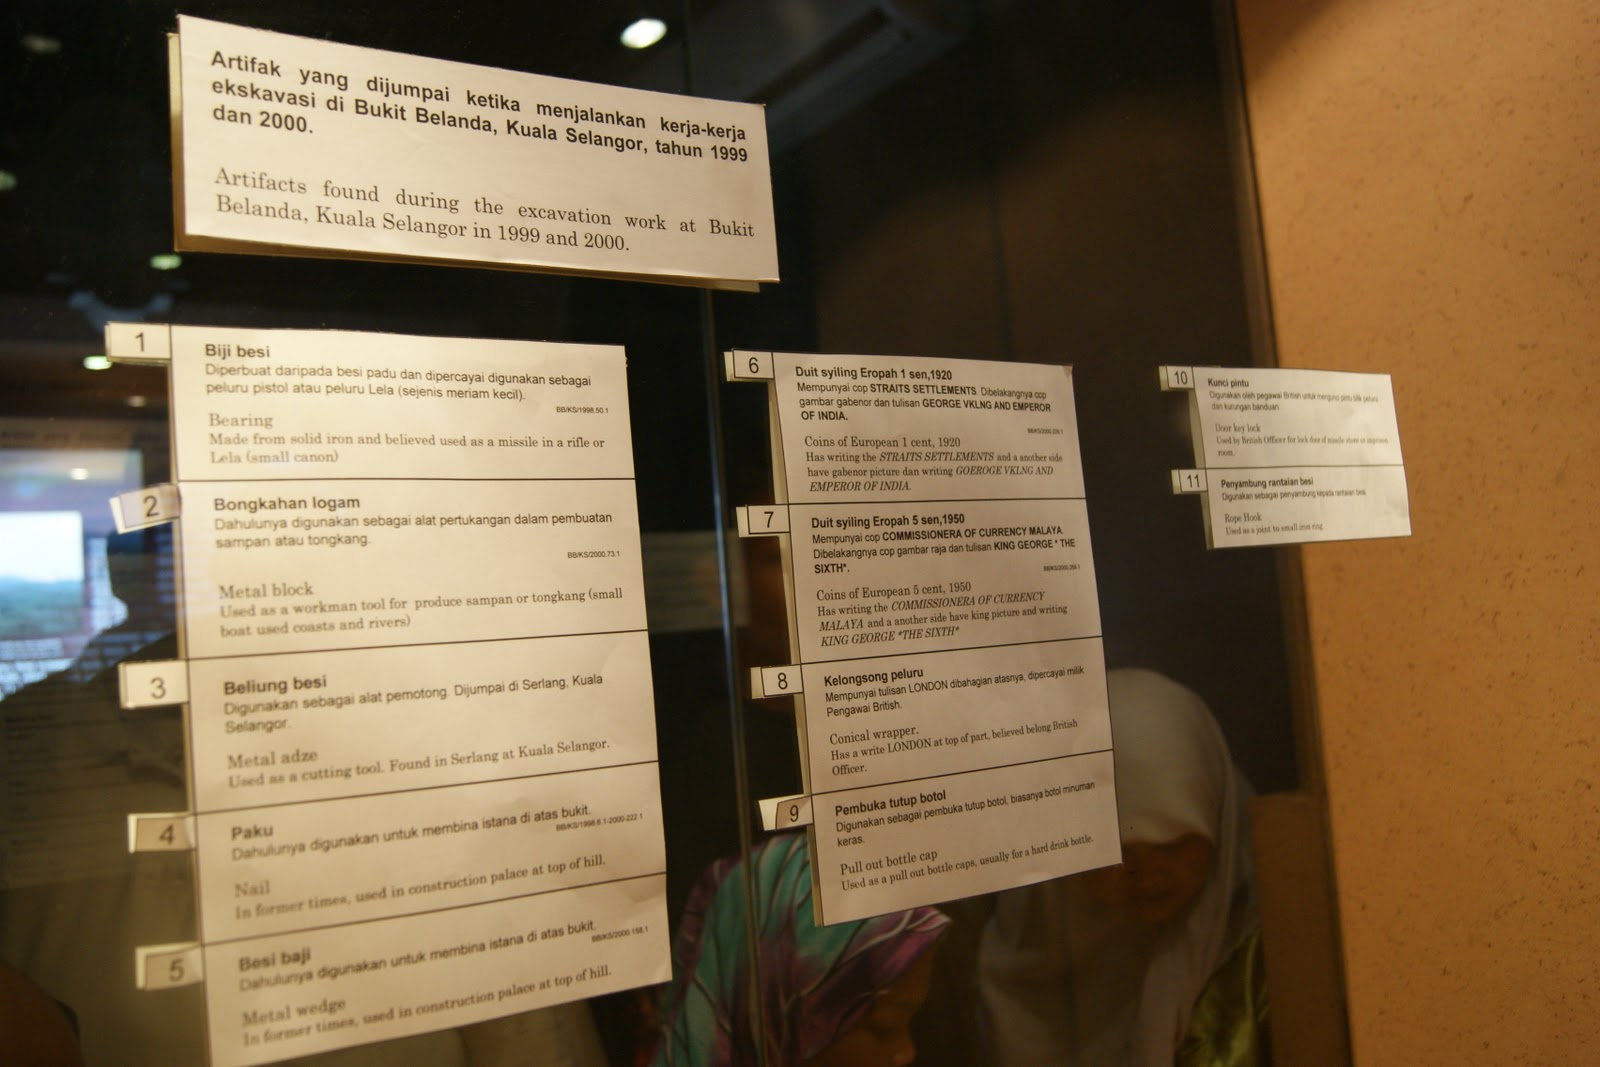 Artifak yang dijumpai ketika menjalankan kerja-kerja
ekskavasi di Bukit Belanda, Kuala Selangor, tahun 1999
dan 2000.
Artifacts found during the excavation work at Bukit
Belanda, Kuala Selangor in 1999 and 2000.
1
Biji besi
Diperbuat daripada besi padu dan dipercayai digunakan sebagai
peluru pistol atau peluru Lela (sejenis meriam kecil).
BB/KS/1998.50.1
Bearing
Made from solid iron and believed used as a missile in a rifle or
Lela (small canon)
2
Bongkahan logam
Dahulunya digunakan sebagai alat pertukangan dalam pembuatan
sampan atau tongkang.
BB/KS/2000.73.1
Metal block
Used as a workman tool for produce sampan or tongkang (small
boat used coasts and rivers)
3
Beliung besi
Digunakan sebagai alat pemotong. Dijumpai di Serlang, Kuala
Selangor.
Metal adze
Used as a cutting tool. Found in Serlang at Kuala Selangor.
4
Paku
Dahulunya digunakan untuk membina istana di atas bukit.
BB/KS/1998.6.1-2000-222.1
Nail
In former times, used in construction palace at top of hill.
5
Besi baji
Dahulunya digunakan untuk membina istana di atas bukit.
BB/KS/2000.158.1
Metal wedge
In former times, used in construction palace at top of hill.
6
Duit syiling Eropah 1 sen,1920
Mempunyai cop STRAITS SETTLEMENTS. Dibelakangnya cop
gambar gabenor dan tulisan GEORGE VKLNG AND EMPEROR
OF INDIA.
Coins of European 1 cent, 1920
Has writing the STRAITS SETTLEMENTS and a another side
have gabenor picture dan writing GOEROGE VKLNG AND
EMPEROR OF INDIA.
7
Duit syiling Eropah 5 sen,1950
Mempunyai cop COMMISSIONERA OF CURRENCY MALAYA.
Dibelakangnya cop gambar raja dan tulisan KING GEORGE * THE
SIXTH*.
Coins of European 5 cent, 1950
Has writing the COMMISSIONERA OF CURRENCY
MALAYA and a another side have king picture and writing
KING GEORGE *THE SIXTH*
8
Kelongsong peluru
Mempunyai tulisan LONDON dibahagian atasnya, dipercayai milik
Pengawai British.
Conical wrapper.
Has a write LONDON at top of part, believed belong British
Officer.
9
Pembuka tutup botol
Digunakan sebagai pembuka tutup botol, biasanya botol minuman
keras.
Pull out bottle cap
Used as a pull out bottle caps, usually for a hard drink bottle.
10
Kunci pintu
Digunakan oleh pegawai British untuk mengunci pintu bilik peluru
dan kurungan banduan.
Door key lock
Used by British Officer for lock door of missile store or imprison
room.
11
Penyambung rantaian besi
Digunakan sebagai penyambung kepada rantaian besi.
Rope Hook
Used as a joint to small iron ring